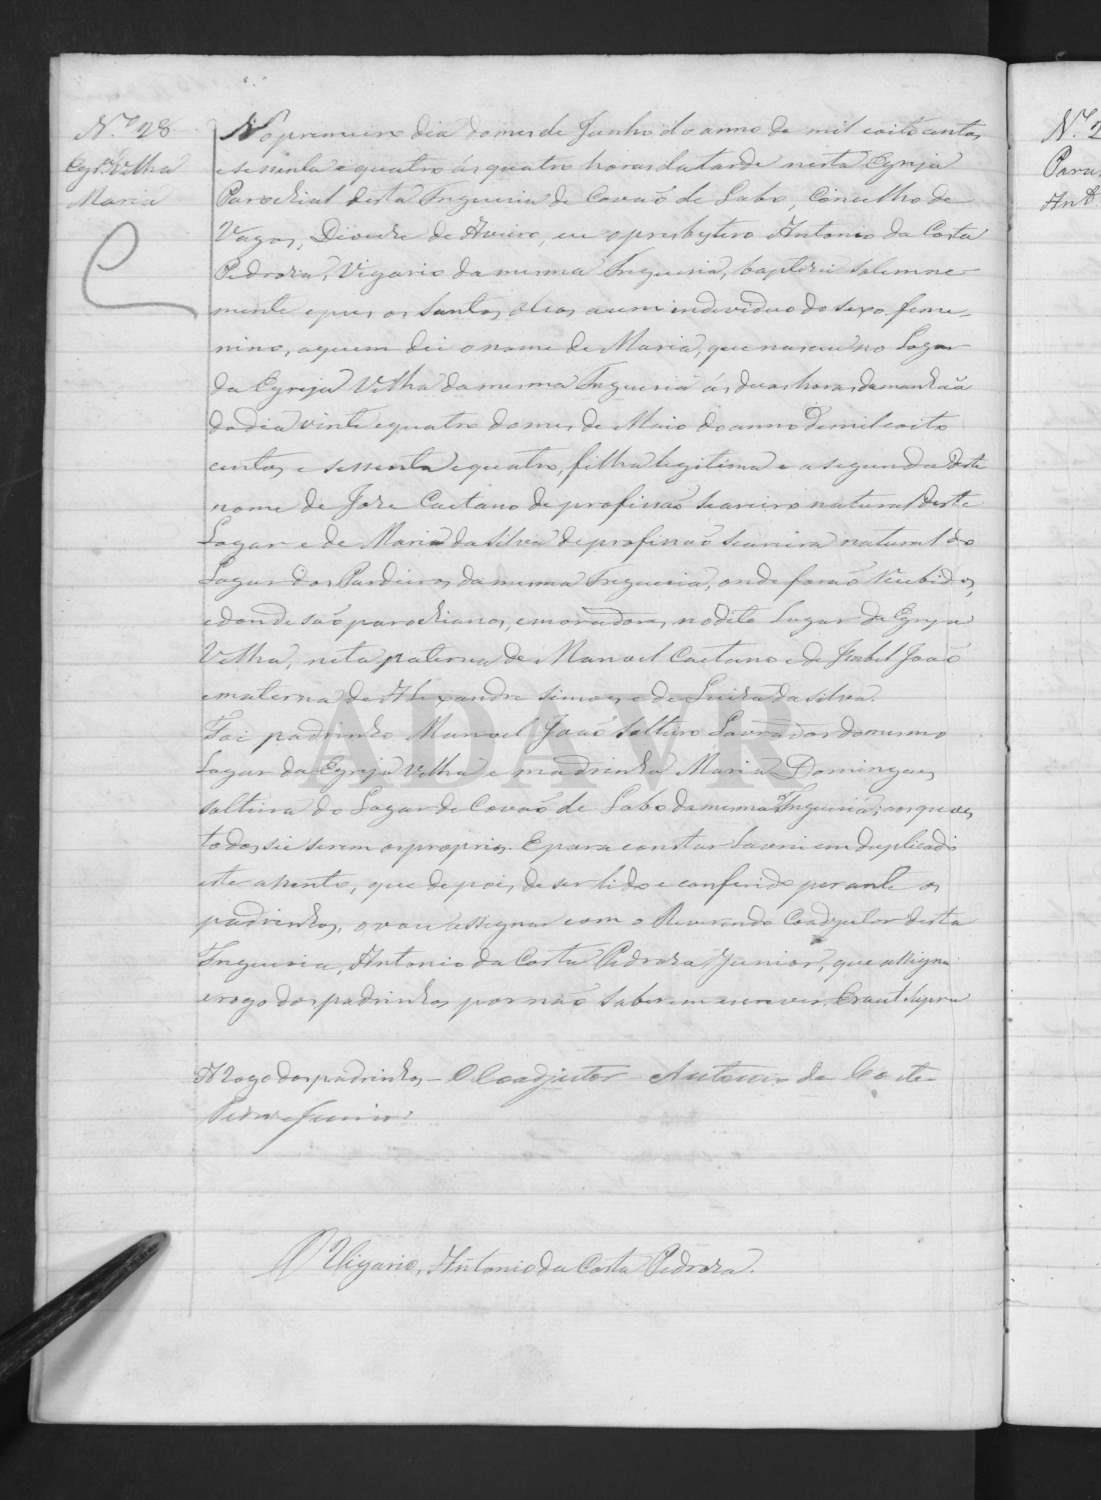 N.º 28
Egrª Velha
Maria
No premeiro dia do mes de Junho do anno de mil oito centos
e sessenta e quatro ás quatro horas da tarde nesta Egreja
Parochial desta Freguesia de Covaõ de Lobo, Concelho de
Vagos, Diocese de Aveiro, eu o presbytero Antonio da Costa
Pedroza, Vigario da mesma Freguesia, baptizei solemne-
mente e pus os Santos oleos a um individuo do sexo feme-
nino, a quem dei o nome de Maria, que nasceu no Logar
da Egreja Velha da mesma Freguesia ás duas horas da manhaã
do dia vinte e quatro do mes de Maio do anno de mil oito
centos e sessenta e quatro, filha legitima e a segunda deste
nome de Joze Caetano de profissaõ seareiro natural deste
Logar e de Maria da Silva de profissaõ seareira natural do
Lugar dos Pardieiros da mesma Freguesia, onde foraõ recebidos,
e donde saõ parochianos, e moradores no dito Lugar da Egreja
Velha, neta paterna de Manoel Caetano e de Izabel Joaõ
e materna de Alexandre Simoes e de Luiza da Silva.
Foi padrinho Manoel Joaõ solteiro Lavrador do mesmo
Logar da Egreja Velha e madrinha Maria Domingues
solteira do Logar de Covaõ de Lobo da mesma Freguesia, os quaes
todos sei serem os proprios. E para constar lavrei em duplicado
este assento, que depois de ser lido e conferido perante os
padrinhos, o vou assignar com o Reverendo Coadjutor desta
Freguesia, Antonio da Costa Pedroza Junior, que assigna
a rogo dos padrinhos por naõ saberem escrever. Era ut supra
A rogo dos padrinhos – O Coadjutor Antonio da Costa
Pedroza Junior
O Vigario, Antonio da Costa Pedroza.
ADAVR
N.º 2
Ant.